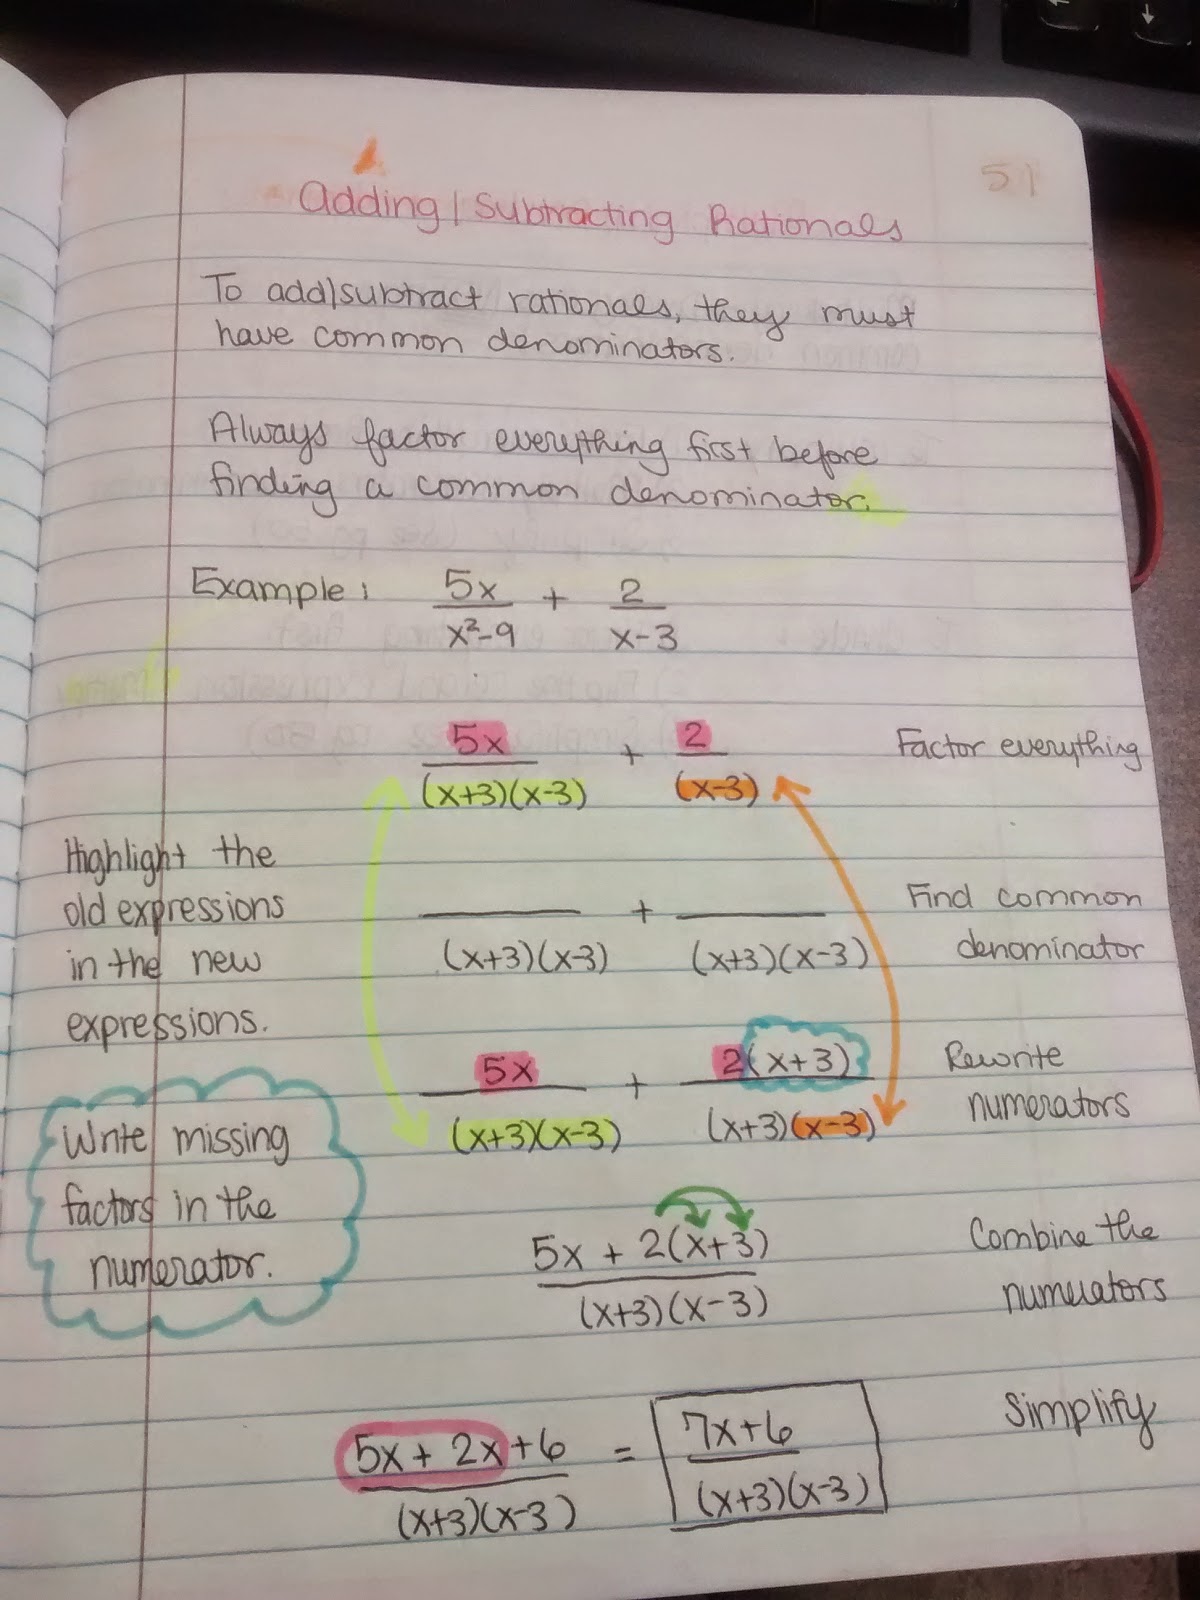 51
Adding/Subtracting Rationals
To add/subtract rationals, they must
have common denominators.
Always factor everything first before
finding a common denominator.
Example: 5x/(x²-9) + 2/(x-3)
5x/((x+3)(x-3)) + 2/(x-3) Factor everything
Highlight the
old expressions
in the new
expressions.
___/((x+3)(x-3)) + ___/((x+3)(x-3)) Find common
denominator
5x/((x+3)(x-3)) + 2(x+3)/((x+3)(x-3)) Rewrite
numerators
Write missing
factors in the
numerator.
(5x + 2(x+3))/((x+3)(x-3)) Combine the
numerators
(5x + 2x + 6)/((x+3)(x-3)) = (7x+6)/((x+3)(x-3)) Simplify